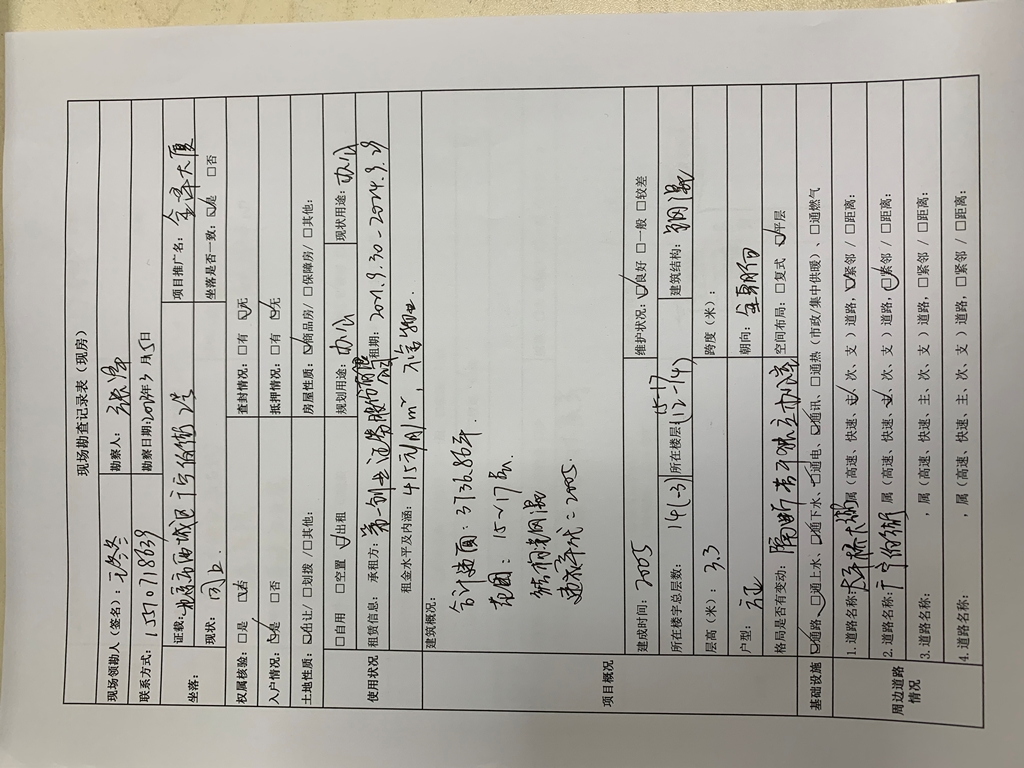 现场勘查记录表（现房）
现场领勘人（签名）： 勘察人：
联系方式：15510718639 勘察日期:2024年3月5日
坐落： 证载：北京市西城区广宁伯街2号 项目推广名：金泽大厦
现状：同上 坐落是否一致：☑是 □否
权属核验：□是 ☑否 查封情况：□有 ☑无
入户情况：☑是 □否 抵押情况：□有 ☑无
土地性质：☑出让/□划拨/□其他： 房屋性质：☑商品房/□保障房/□其他：
使用状况 □自用 □空置 ☑出租 规划用途：办公 现状用途：办公
租赁信息：承租方：第一创业证券股份有限公司 租期：2021.9.30-2024.9.29
租金水平及内涵：415元/月/m²，不含物业.
项目概况
建筑概况：
合计建面：3736.86㎡
范围：15~17层
结构钢混
建成年代=2005.
建成时间：2005 维护状况：☑良好 □一般 □较差
所在楼宇总层数：14(-3) 所在楼层 15-17 (12-14) 建筑结构：钢混
层高（米）：3.3 跨度（米）：
户型： 朝向：
格局是否有变动： 空间布局：□复式 ☑平层
基础设施 ☑通路、☑通上水、☑通下水、☑通电、☑通讯、□通热（市政/集中供暖）、□通燃气
周边道路情况
1.道路名称:太平桥大街，属（高速、快速、主、次、支）道路，☑紧邻/□距离：
2.道路名称:广宁伯街，属（高速、快速、主、次、支）道路，☑紧邻/□距离：
3.道路名称： ，属（高速、快速、主、次、支）道路，□紧邻/□距离：
4.道路名称： ，属（高速、快速、主、次、支）道路，□紧邻/□距离：